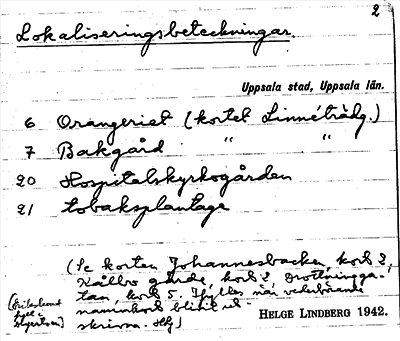 2
Lokaliseringsbeteckningar.
Uppsala stad, Uppsala län.
6 Orangeriet (kortet Linnéträdg.)
7 Bakgård " "
20 Hospitalskyrkogården
21 tobaksplantage
(Se korten Johannesbacken, kort 2,
gärde, kort 2, Drottningga-
tan, kort 5. Ifylles när vederbörande
namnkort blivit ut-
skrivna. HLg)
HELGE LINDBERG 1942.